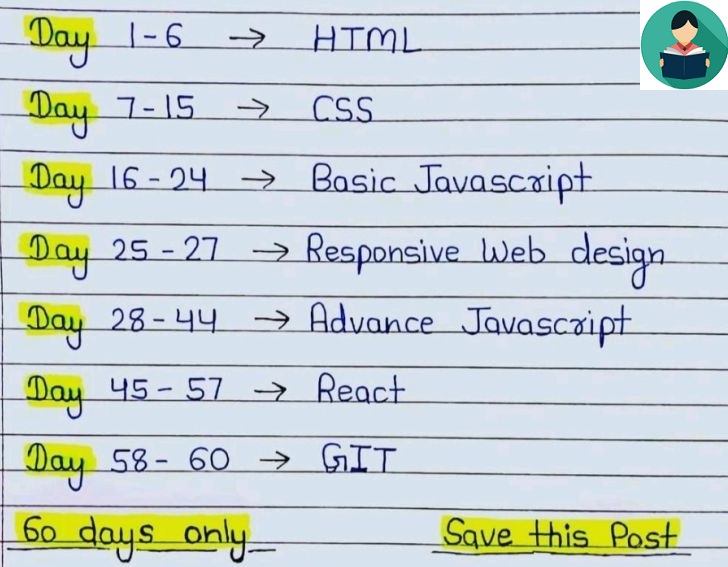 Day 1-6 → HTML
Day 7-15 → CSS
Day 16-24 → Basic Javascript
Day 25-27 → Responsive Web design
Day 28-44 → Advance Javascript
Day 45-57 → React
Day 58-60 → GIT
60 days only
Save this Post